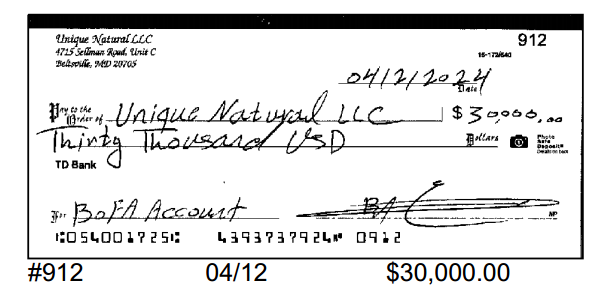 Unique Natural LLC
4715 Sellman Road, Unit C
Beltsville, MD 20705
912
15-173/540
04/12/2024
Date
Pay to the Order of Unique Natural LLC $30000.00
Thirty Thousand USD Dollars
Photo Safe Deposit® Details on back
TD Bank
For BofA Account BA MP
⑆054001725⑆ 4393737924⑈ 0912
#912 04/12 $30,000.00